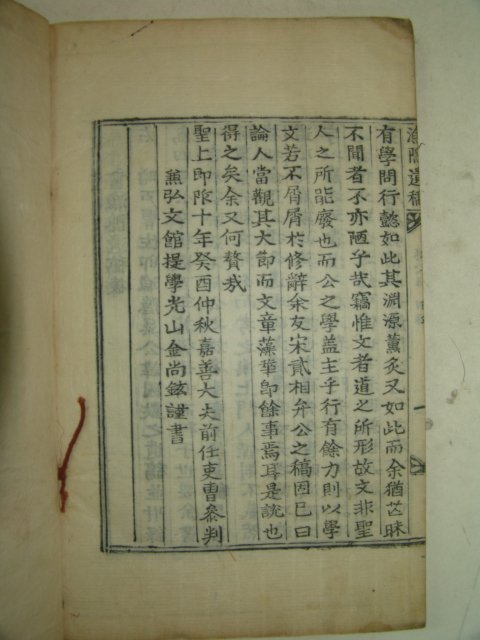 漁隱遺稿序
有學問行懿如此其淵源薰炙又如此而余猶茫昧
不聞者不亦陋乎哉竊惟文者道之所形故文非聖
人之所能廢也而公之學盖主乎行有餘力則以學
文若不屑屑於修辭余友宋貳相弁公之稿固已曰
論人當觀其大節而文章藻華卽餘事焉耳是說也
得之矣余又何贅哉
聖上卽阼十年癸酉仲秋嘉善大夫前任吏曹叅判
兼弘文館提學光山金尙鉉謹書